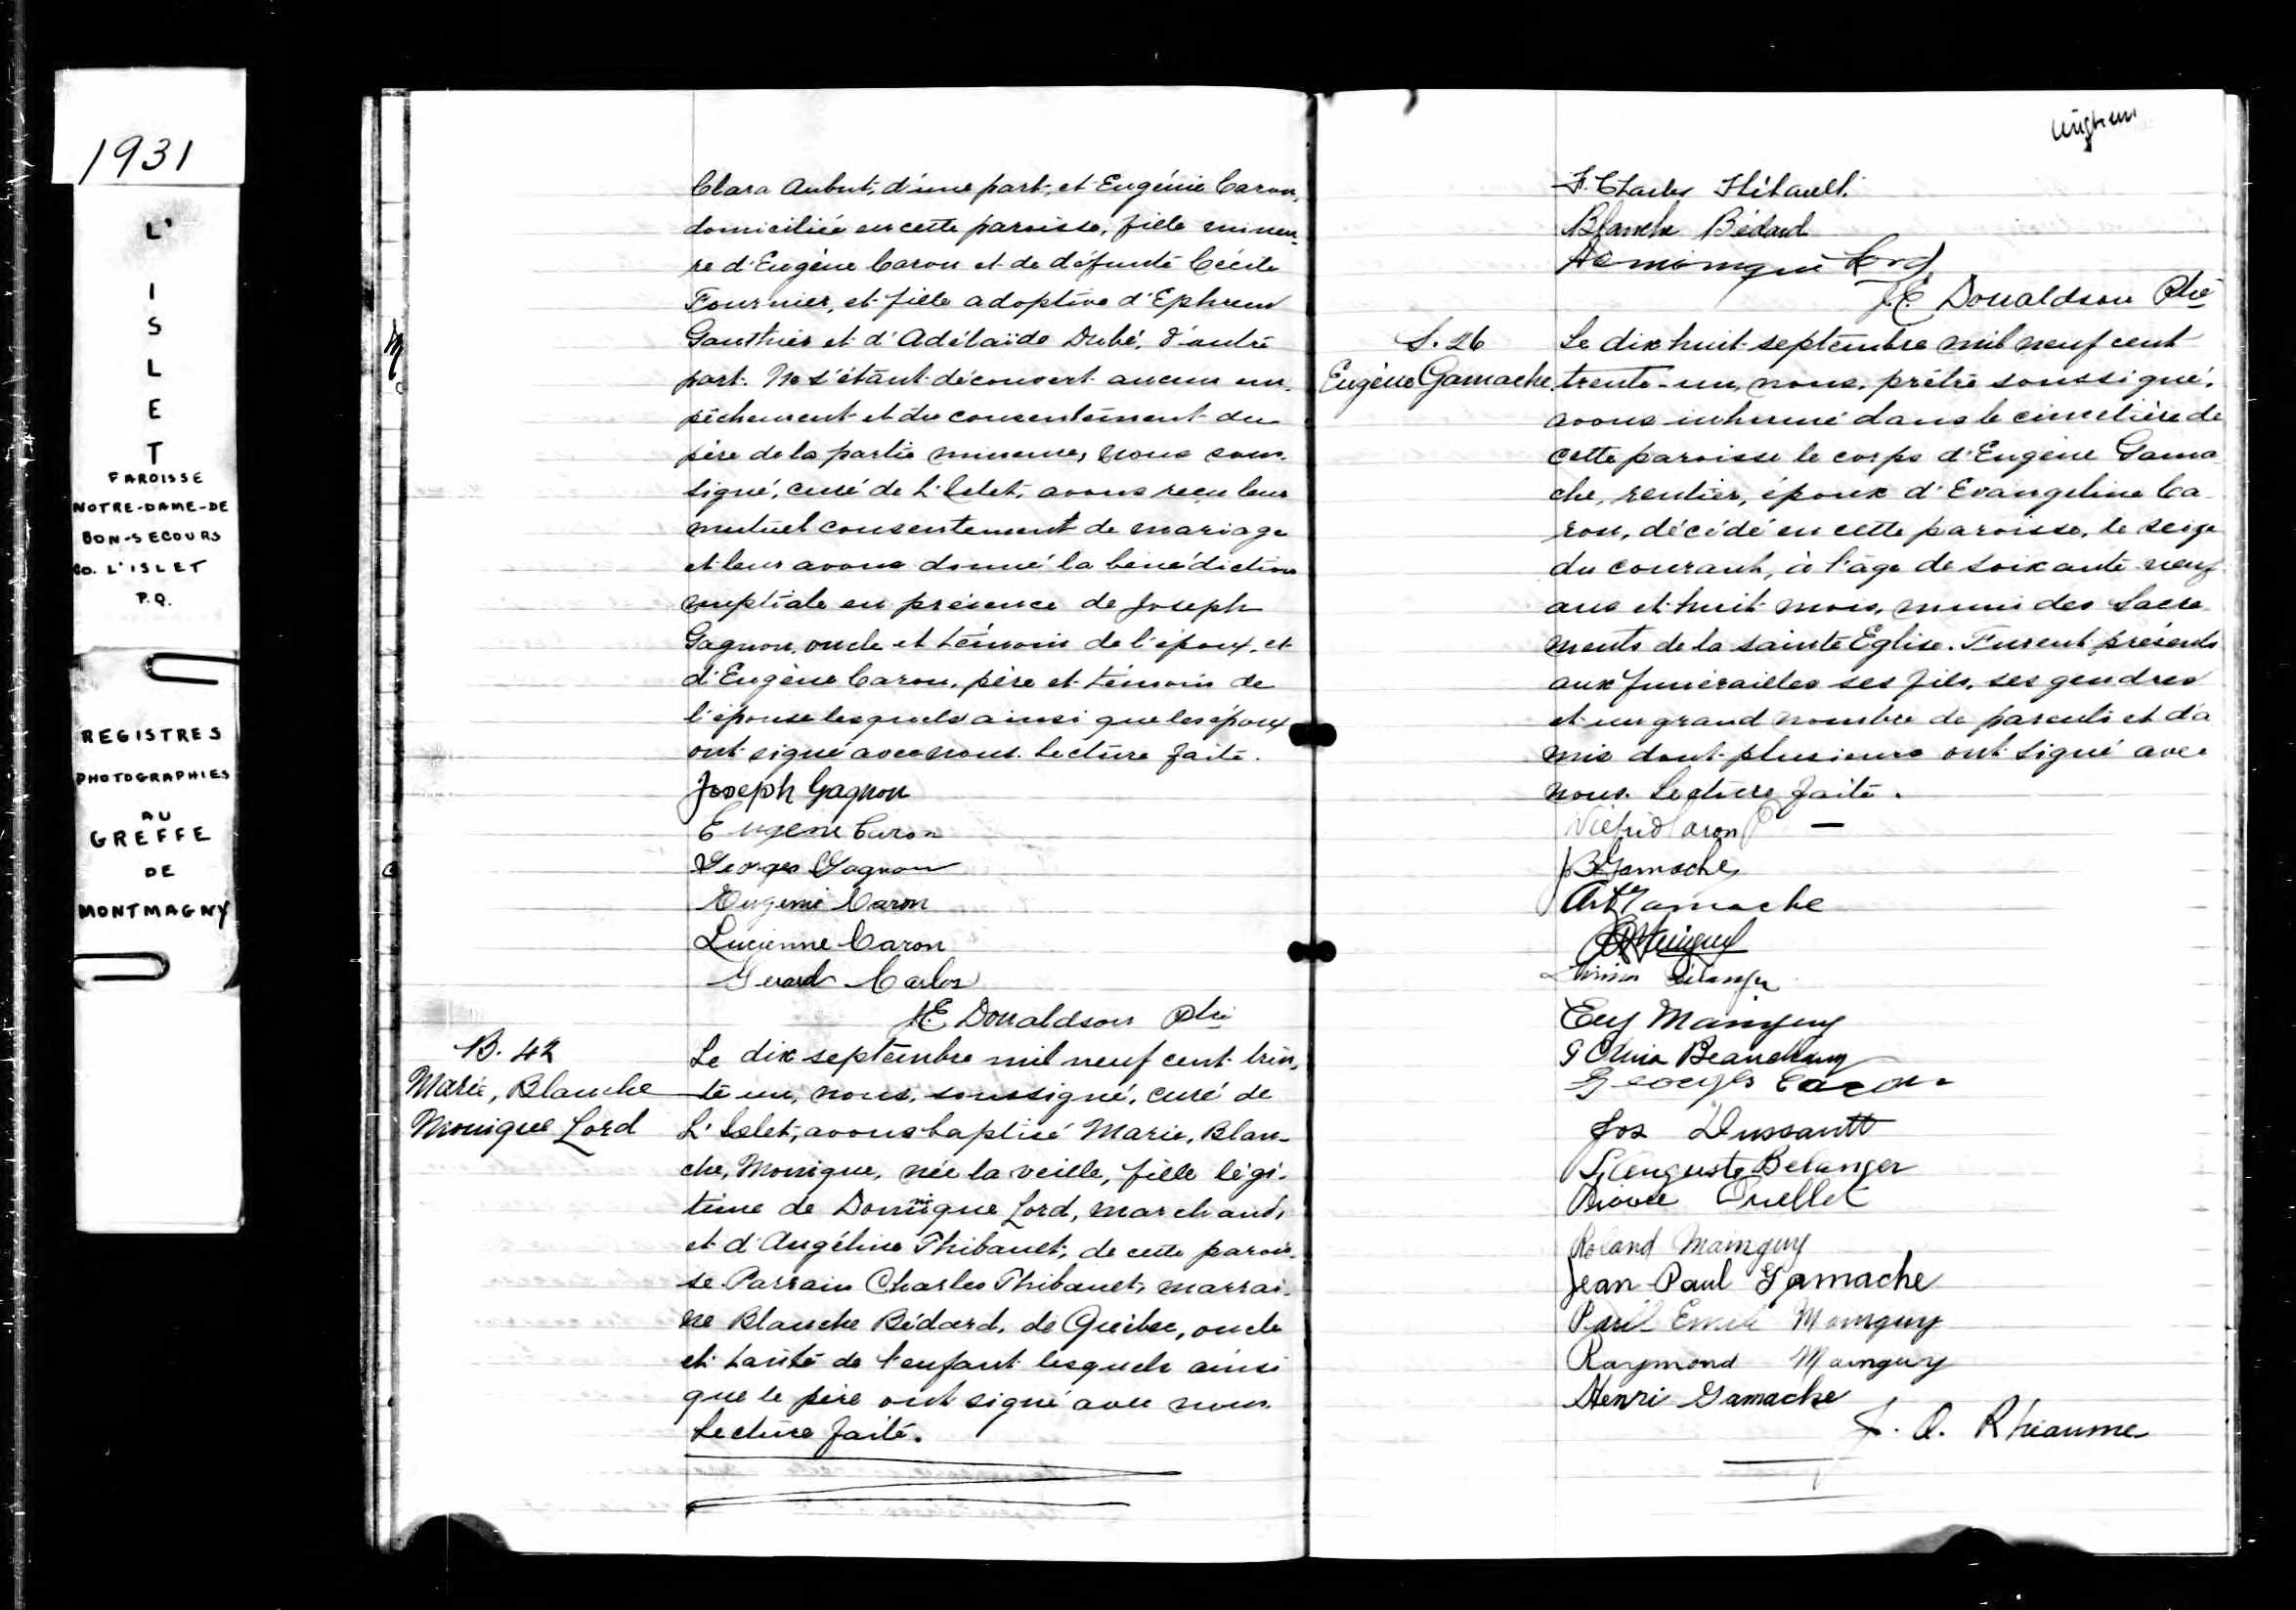 1931
L'
I
S
L
E
T
PAROISSE
NOTRE-DAME-DE
BON-SECOURS
CO. L'ISLET
P.Q.
REGISTRES
PHOTOGRAPHIES
AU
GREFFE
DE
MONTMAGNY
Clara Aubut, d'une part, et Eugénie Caron,
domiciliée en cette paroisse, fille mineu-
re d'Eugène Caron et de défunte Cécile
Fournier, et fille adoptive d'Ephrem
Gauthier et d'Adélaïde Dubé, d'autre
part. Ne s'étant découvert aucun em-
pêchement et du consentement du
père de la partie mineure, nous sous-
signé, curé de L'Islet, avons reçu leur
mutuel consentement de mariage
et leur avons donné la bénédiction
nuptiale en présence de Joseph
Gagnon, oncle et témoin de l'époux, et
d'Eugène Caron, père et témoin de
l'épouse lesquels ainsi que les époux
ont signé avec nous. Lecture faite.
Joseph Gagnon
Eugène Caron
Georges Gagnon
Eugénie Caron
Lucienne Caron
Gerard Carlos
J.E. Donaldson Ptre
B. 42
Marie, Blanche
Monique Lord
Le dix septembre mil neuf cent tren-
te un, nous, soussigné, curé de
L'Islet, avons baptisé Marie, Blan-
che, Monique, née la veille, fille légi-
time de Dominique Lord, marchand,
et d'Angéline Thibault, de cette parois-
se. Parrain Charles Thibault, marrai-
ne Blanche Bédard, de Québec, oncle
et tante de l'enfant lesquels ainsi
que le père ont signé avec nous.
Lecture faite.
F. Charles Thibault.
Blanche Bédard
Dominique Lord
J.E. Donaldson Ptre
S. 26
Eugène Gamache.
Le dix huit septembre mil neuf cent
trente-un, nous, prêtre soussigné,
avons inhumé dans le cimetière de
cette paroisse le corps d'Eugène Gama
che, rentier, époux d'Evangeline Ca-
ron, décédé en cette paroisse, le seize
du courant, à l'âge de soixante-neuf
ans et huit mois, muni des Sacre
ments de la sainte Eglise. Furent présents
aux funérailles ses fils, ses gendres
et un grand nombre de parents et d'a
mis dont plusieurs ont signé avec
nous. Lecture faite.
Wilfrid Caron
JB Gamache
Art Gamache
Eug Mainguy
Georges Caron
Jos Dussault
Auguste Belanger
Ouellet
Roland Mainguy
Jean-Paul Gamache
Paul Emile Mainguy
Raymond Mainguy
Henri Gamache
J. O. Rhéaume